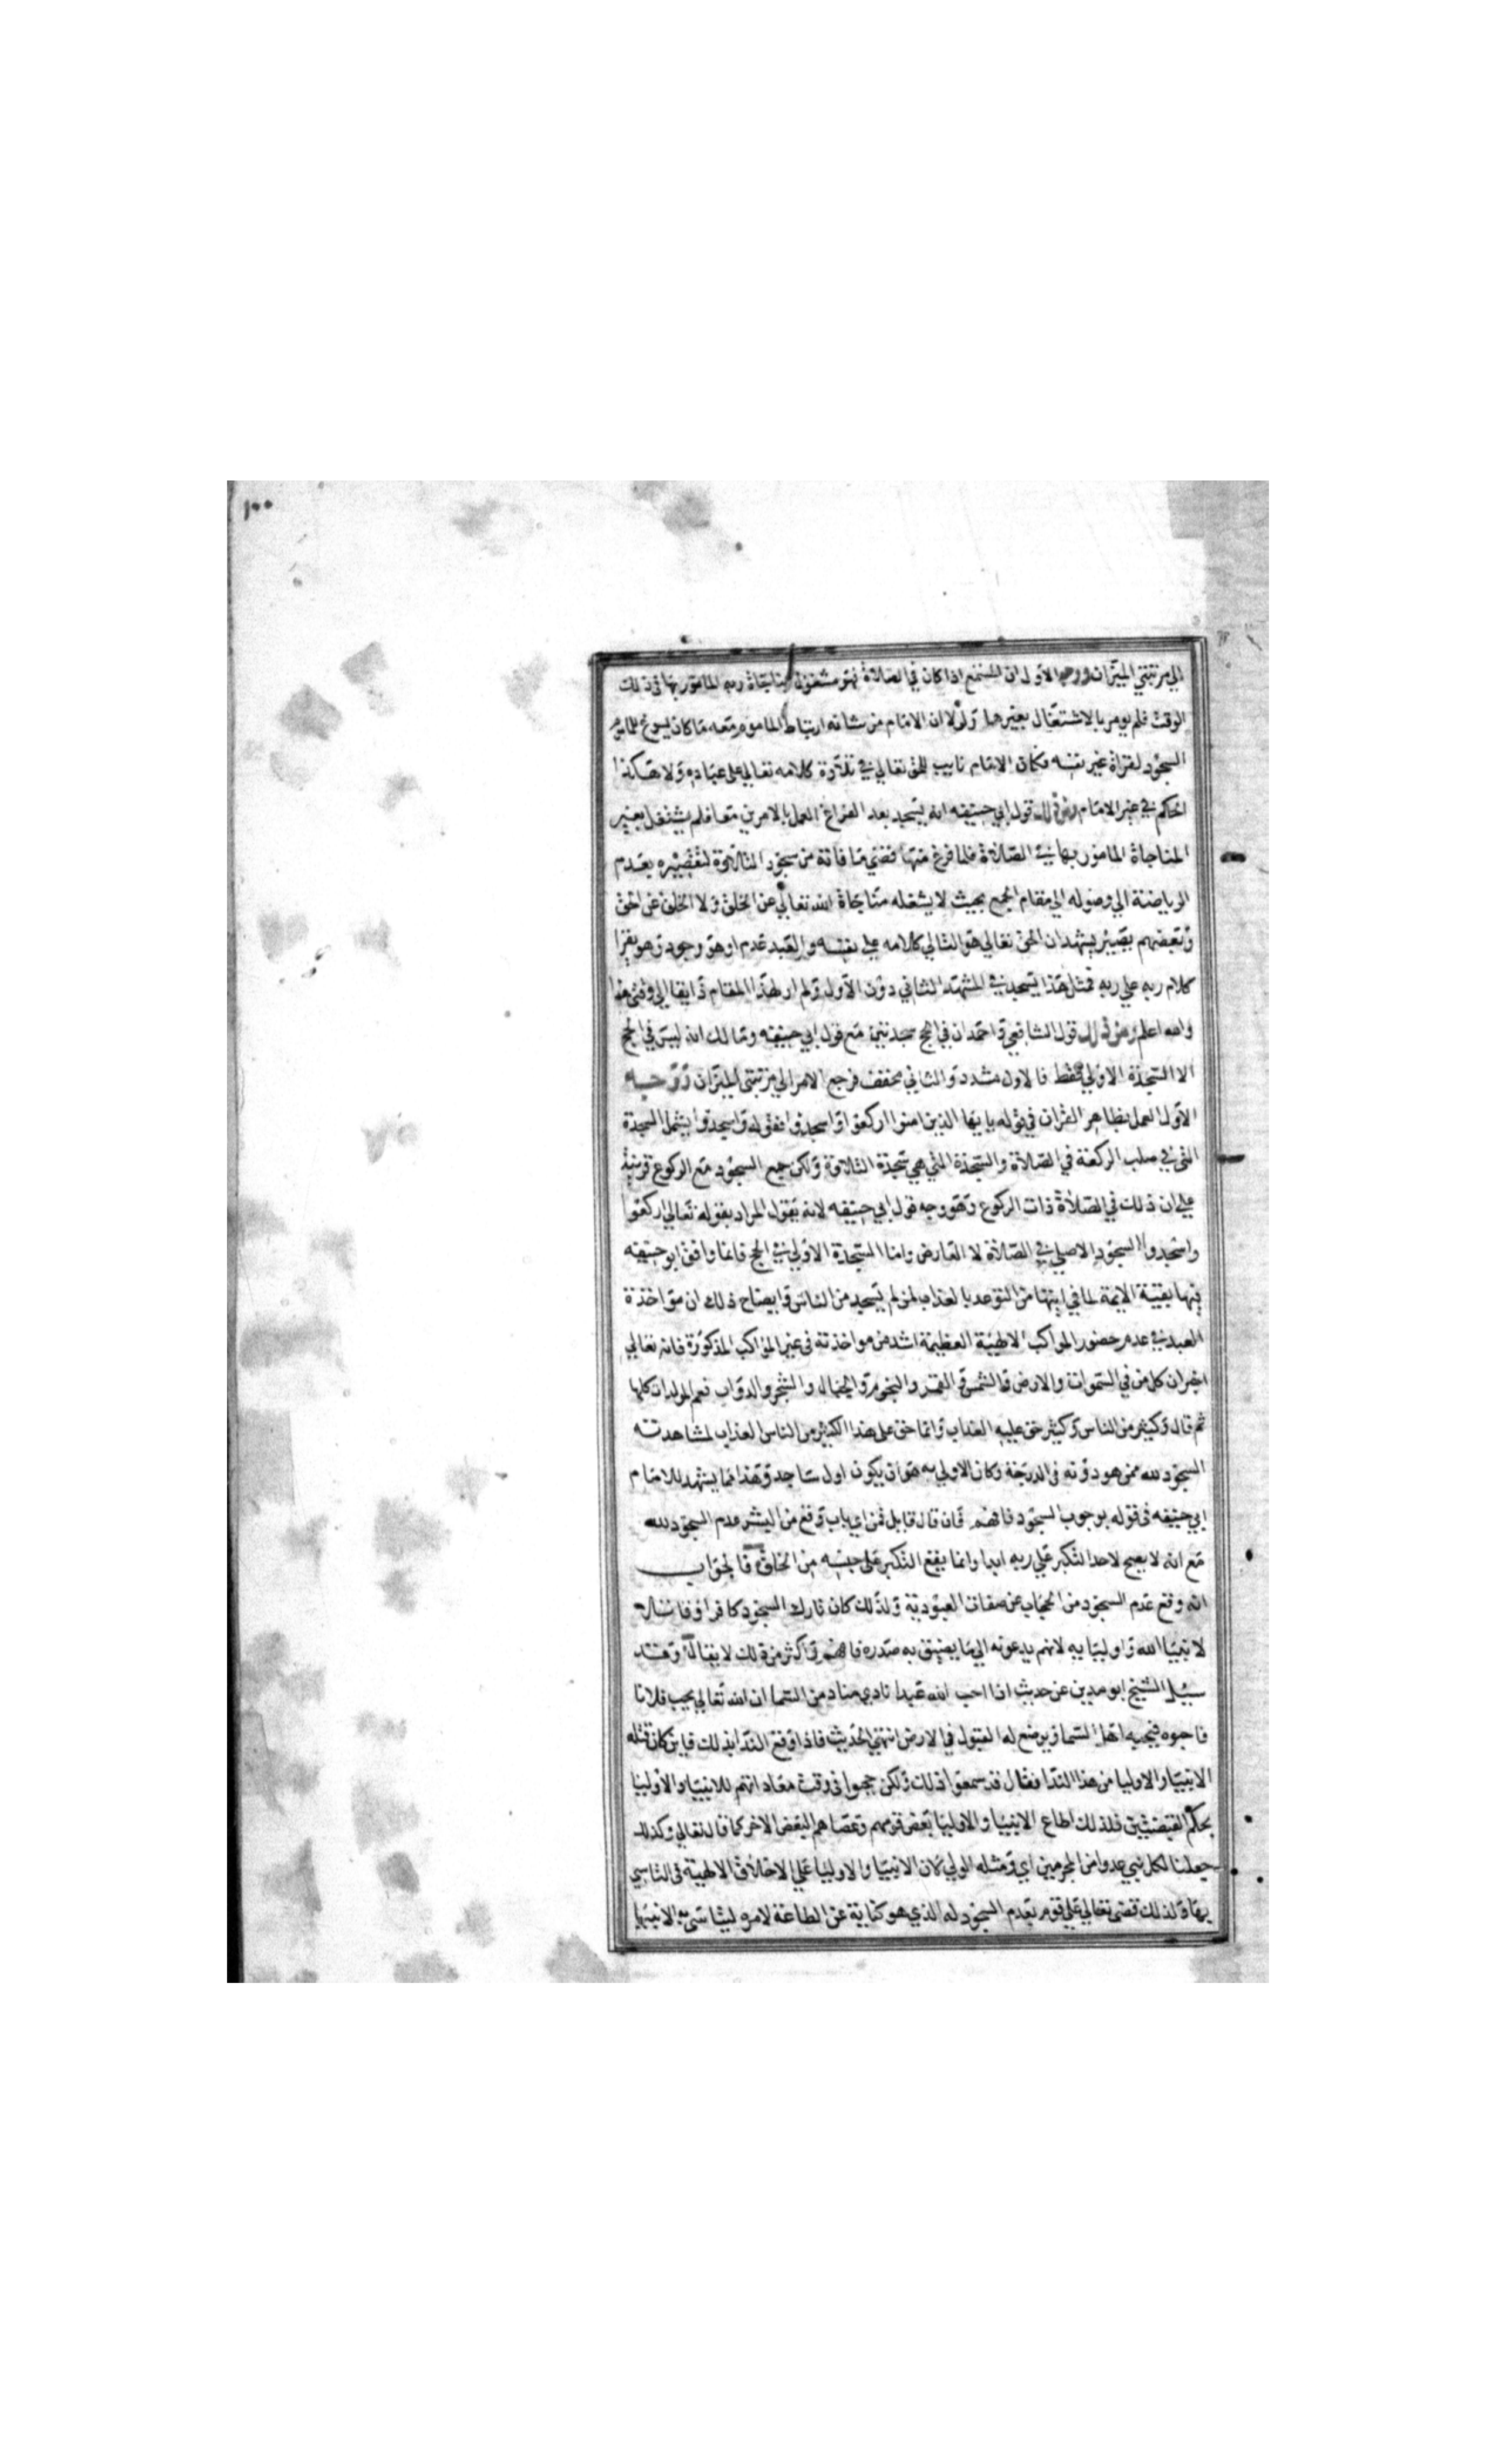 ١٠٠
الي مرتبتي الميزان ووجه الاول ان المستمع اذا كان في الصلاة فهو مشغول بمناجاة ربه المامور بها في ذلك
الوقت فلم يومر بالاشتغال بغيرها ولولا ان الامام من شانه ارتباط الماموم معه ما كان يسوغ للماموم
السجود لقراة غير نفسه فكان الامام نايب للحق تعالي في تلاوة كلامه تعالي علي عباده ولا هكذا
الحكم في غير الامام قول ابي حنيفه انه يسجد بعد الفراغ العمل بالامرين معا فلم يشتغل بغير
المناجاة المامور بها في الصلاة فلما فرغ منها قضي ما فاته من سجود التلاوة لتقصيره بعدم
الرياضة الي وصوله الي مقام الجمع بحيث لا يشغله مناجاة الله تعالي عن الخلق ولا الخلق عن الحق
وبعضهم يصير يشهد ان الحق تعالي هو التالي كلامه علي نفسه والعبد عدم او هو وجود وهو يقرا
كلام ربه علي ربه فمثل هذا يسجد في المشهد الثاني دون الاول ولم ار لهذا المقام ذايقا الي وقتي هذا
والله اعلم ومن ذلك قول الشافعي واحمد ان في الحج سجدتين مع قول ابي حنيفه ومالك انه ليس في الحج
الا السجدة الاولي فقط فالاول مشدد والثاني مخفف فرجع الامر الي مرتبتي الميزان ووجه
الاول العمل بظاهر القران في قوله يا يها الذين امنوا اركعوا واسجدوا فقوله واسجدوا يشمل السجدة
التي في صلب الركعة في الصلاة والسجدة التي هي سجدة التلاوة ولكن جمع السجود مع الركوع قرينة
علي ان ذلك في الصلاة ذات الركوع وهو وجه قول ابي حنيفه لانه يقول المراد بقوله تعالي اركعوا
واسجدوا السجود الاصلي في الصلاة لا العارض واما السجدة الاولي في الحج فانما وافق ابو حنيفه
فيها بقية الايمة لما في ايتها من التوعد بالعذاب لمن لم يسجد من الناس وايضاح ذلك ان مواخذة
العبد في عدم حضور المواكب الالهية العظيمة اشد من مواخذته في غير المواكب المذكورة فانه تعالي
اخبر ان كل من في السموات والارض والشمس والقمر والنجوم والجبال والشجر والدواب فعم المولدات كلها
ثم قال وكثير من الناس وكثير حق عليه العذاب وانما حق علي هذا الكثير من الناس العذاب لمشاهدته
السجود لله ممن هو دونه في الدرجة وكان الاولي به هو ان يكون اول ساجد وهذا مما يشهد للامام
ابي حنيفه في قوله بوجوب السجود فافهم فان قال قايل فمن اي باب وقع من البشر عدم السجود لله
مع انه لا يصح لاحد التكبر علي ربه ابدا وانما يقع التكبر علي جنسه من الخلق فالجواب
انه وقع عدم السجود من الحجاب عن صفات العبودية ولذلك كان تارك السجود كافرا وفاسقا
لانبيا الله واوليايه لانهم يدعونه الي ما يضيق به صدره فافهم واكثر من ذلك لا يقال وقد
سيل الشيخ ابو مدين عن حديث اذا احب الله عبدا نادي مناد من السما ان الله تعالي يحب فلانا
فاحبوه فيحبه اهل السما ويوضع له القبول في الارض انتهي الحديث فاذا وقع الندا بذلك فاين كان قتله
الانبيا والاوليا من هذا الندا فقال قد سمعوا ذلك ولكن حجبوا في وقت معاداتهم للانبيا والاوليا
بحكم القبضتين فلذلك اطاع الانبيا والاوليا بعض قومهم وعصاهم البعض الاخر كما قال تعالي وكذلك
جعلنا لكل نبي عدوا من المجرمين اي ومثله الولي كان الانبيا والاوليا علي الاخلاق الالهية في التاسي
بها ولذلك قضي تعالي علي قوم بعدم السجود له الذي هو كناية عن الطاعة لامره ليتاسي به الانبيا